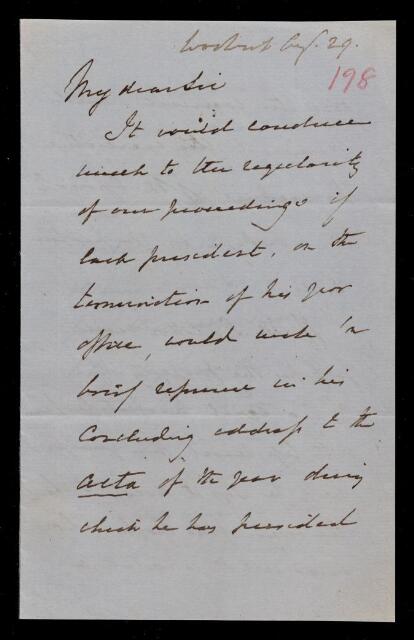 29.
198
My dear Sir
It would conduce
much to the regularity
of our proceedings if
each president, on the
termination of his year
office, would make a
brief reference in his
concluding address to the
acta of the year during
which he has presided